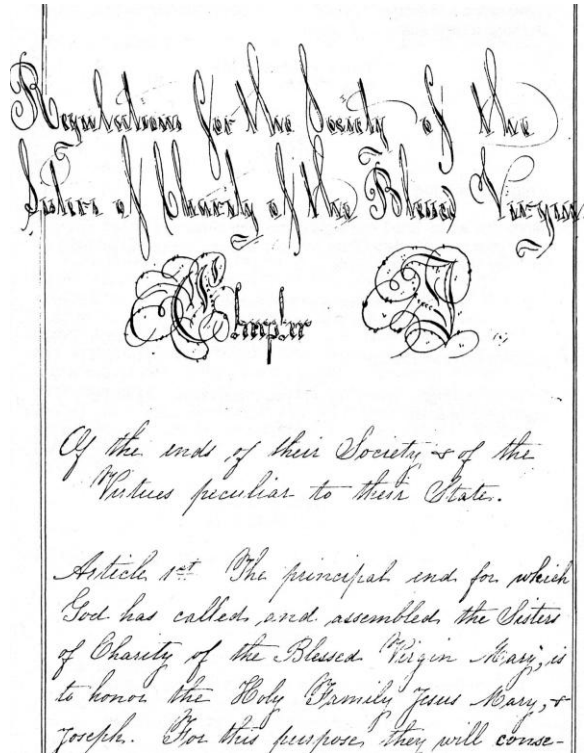 Regulations for the Society of the
Sisters of Charity of the Blessed Virgin
Chapter I
Of the ends of their Society & of the
Virtues peculiar to their State.
Article 1st The principal end for which
God has called and assembled the Sisters
of Charity of the Blessed Virgin Mary, is
to honor the Holy Family Jesus Mary, &
Joseph. For this purpose, they will conse-